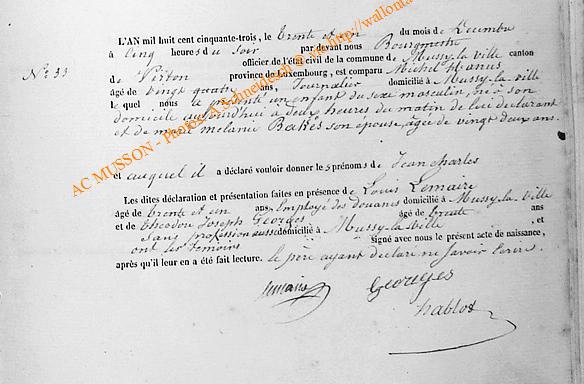 N° 33
L'AN mil huit cent cinquante-trois, le trente et un du mois de Decembre
à Cinq heures du soir par devant nous Bourgmestre
officier de l'état civil de la commune de Mussy-la-ville canton
de Virton province de Luxembourg, est comparu Michel
âgé de vingt quatre ans, Journalier domicilié à Mussy-la-ville
le quel nous a présenté un enfant du sexe masculin, né en son
domicile aujourd'hui à deux heures du matin de lui déclarant
et de marie melanie son épouse, agée de vingt deux ans.
et auquel il a déclaré vouloir donner les prénoms de Jean Charles
Les dites déclaration et présentation faites en présence de Louis Lemaire
âgé de trente et un ans Employé des douanes domicilié à Mussy-la-Ville
et de theodore Joseph Georges âgé de trente ans
sans profession aussi domicilié à Mussy-la-Ville , et
ont les temoins signé avec nous le présent acte de naissance,
après qu'il leur en a été fait lecture. le père ayant declaré ne savoir écrire.
Lemaire
Georges
hablot
AC MUSSON - Photos A. Schneulesch @ sur http://wallonia